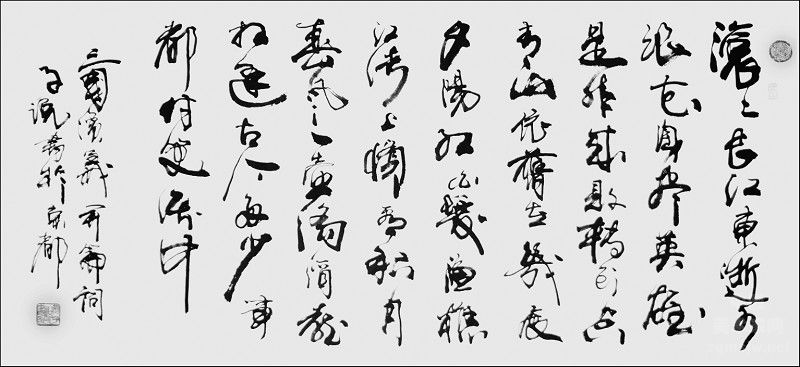 滾〻長江東逝水
浪花淘盡英雄
是非成敗轉頭空
青山依舊在幾度
夕陽紅白髮漁樵
江渚上慣看秋月
春風一壺濁酒喜
相逢古今多少事
都付笑談中
三國演義開篇詞
書於京都